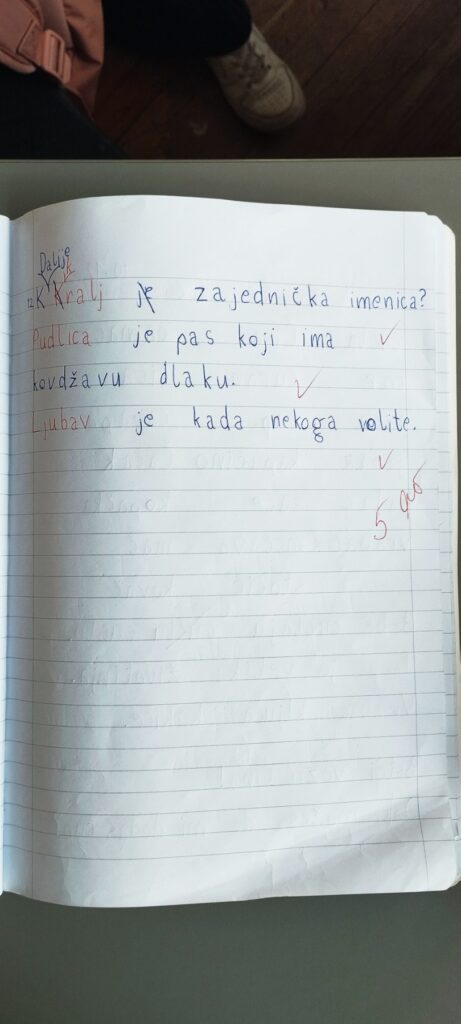 Dalije
12 K Kralj je zajednička imenica?
Pudlica je pas koji ima
kovdžavu dlaku.
Ljubav je kada nekoga volite.
5